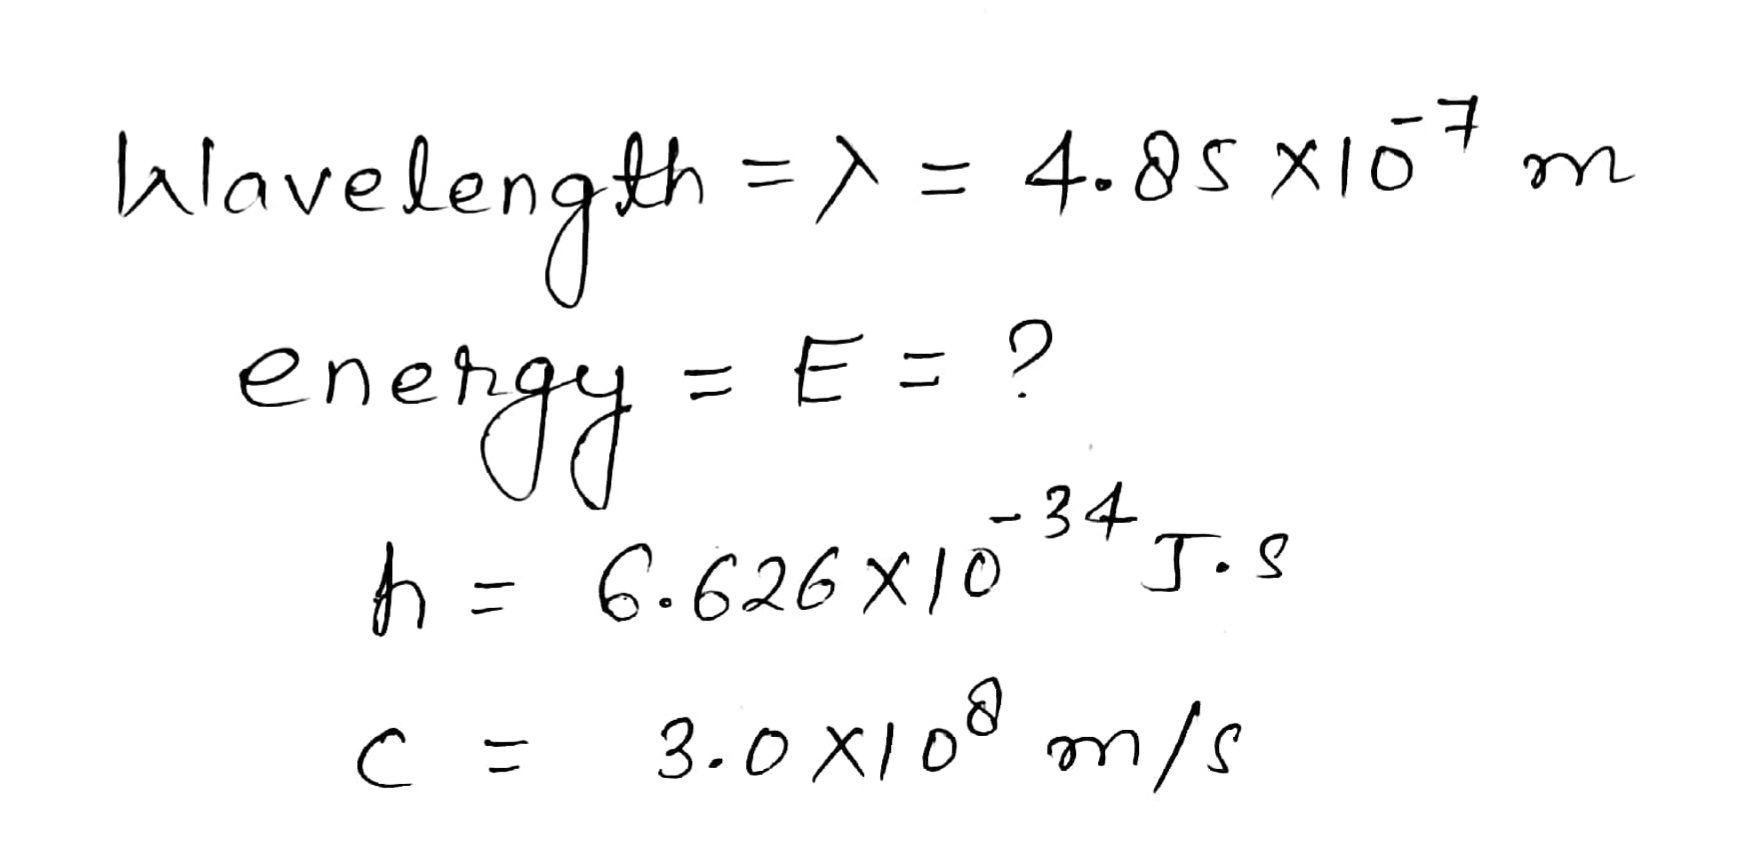 Wavelength = λ = 4.85 × 10⁻⁷ m
energy = E = ?
h = 6.626 × 10⁻³⁴ J.s
c = 3.0 × 10⁸ m/s